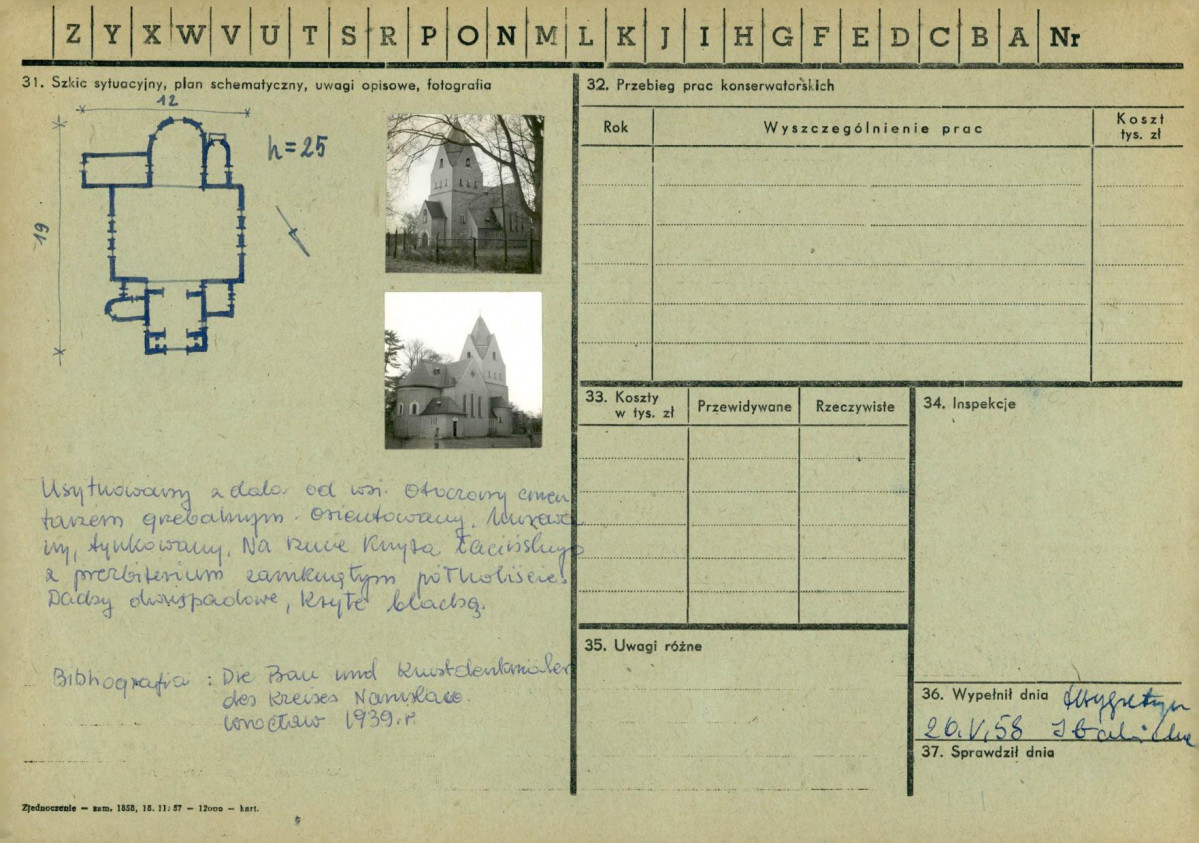 Z Y X W V U T S R P O N M L K J I H G F E D C B A Nr
31. Szkic sytuacyjny, plan schematyczny, uwagi opisowe, fotografia
12
h=25
19
Usytuowany z dala od wsi. Otoczony cmen
tarzem grzebalnym. Orientowany. Murowa
ny, tynkowany. Na rzucie Krzyża Łacińskiego
z prezbiterium zamkniętym półkoliście.
Dachy dwuspadowe, kryte blachą.
Bibliografia : Die Bau und Kunstdenkmaler
des Kreises Namslau.
Wrocław 1939.r
Zjednoczenie — zam. 1858, 18. 11. 57 — 12000 — kart.
32. Przebieg prac konserwatorskich
Rok
Wyszczególnienie prac
Koszt
tys. zł
33. Koszty
w tys. zł
Przewidywane
Rzeczywiste
34. Inspekcje
35. Uwagi różne
36. Wypełnił dnia
20.V.58
37. Sprawdził dnia